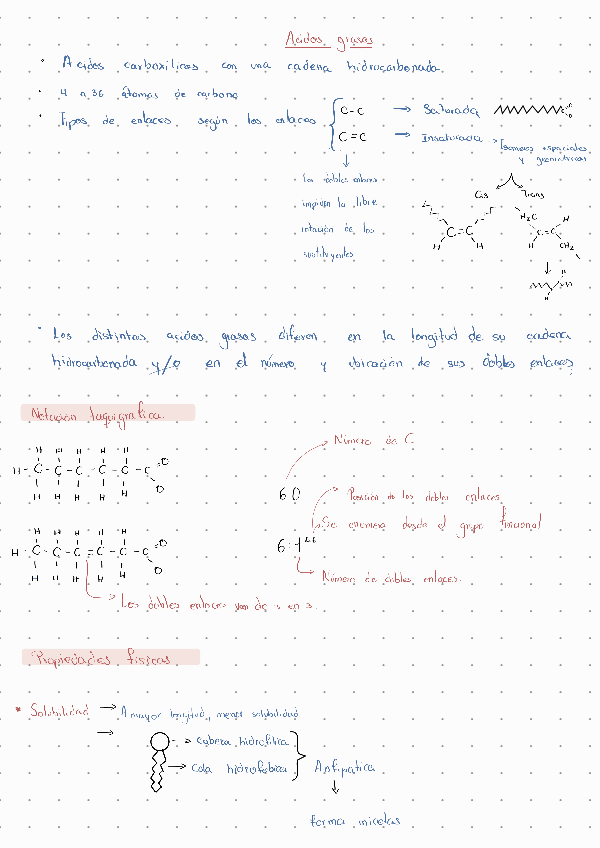 Acidos grasos
· Acidos carboxilicos con una cadena hidrocarbonada.
· 4 a 36 átomos de carbono
· Tipos de enlaces según los enlaces
C-C → Saturada
C=C → Insaturada → Isomeros espaciales
y geometricos
los dobles enlaces
impiden la libre
rotación de los
sustituyentes
Cis Trans
C=C
H H
H3C H
C=C
H CH2
H
H
· Los distintos acidos grasos difieren en la longitud de su cadena
hidrocarbonada y/o en el número y ubicación de sus dobles enlaces
Notación taquigrafica.
H H H H H
H-C-C-C-C-C-C=O
H H H H H O
Número de C.
6:0
Posición de los dobles enlaces
Se enumera desde el grupo funcional
H H H H H
H-C-C-C=C-C-C=O
H H H H H O
6:1
Número de dobles enlaces.
→ Los dobles enlaces van de 3 en 3.
Propiedades fisicas.
* Solubilidad → A mayor longitud, menor solubilidad
→
→ cabeza hidrofilica
→ cola hidrofobica
Anfipatica
forma micelas